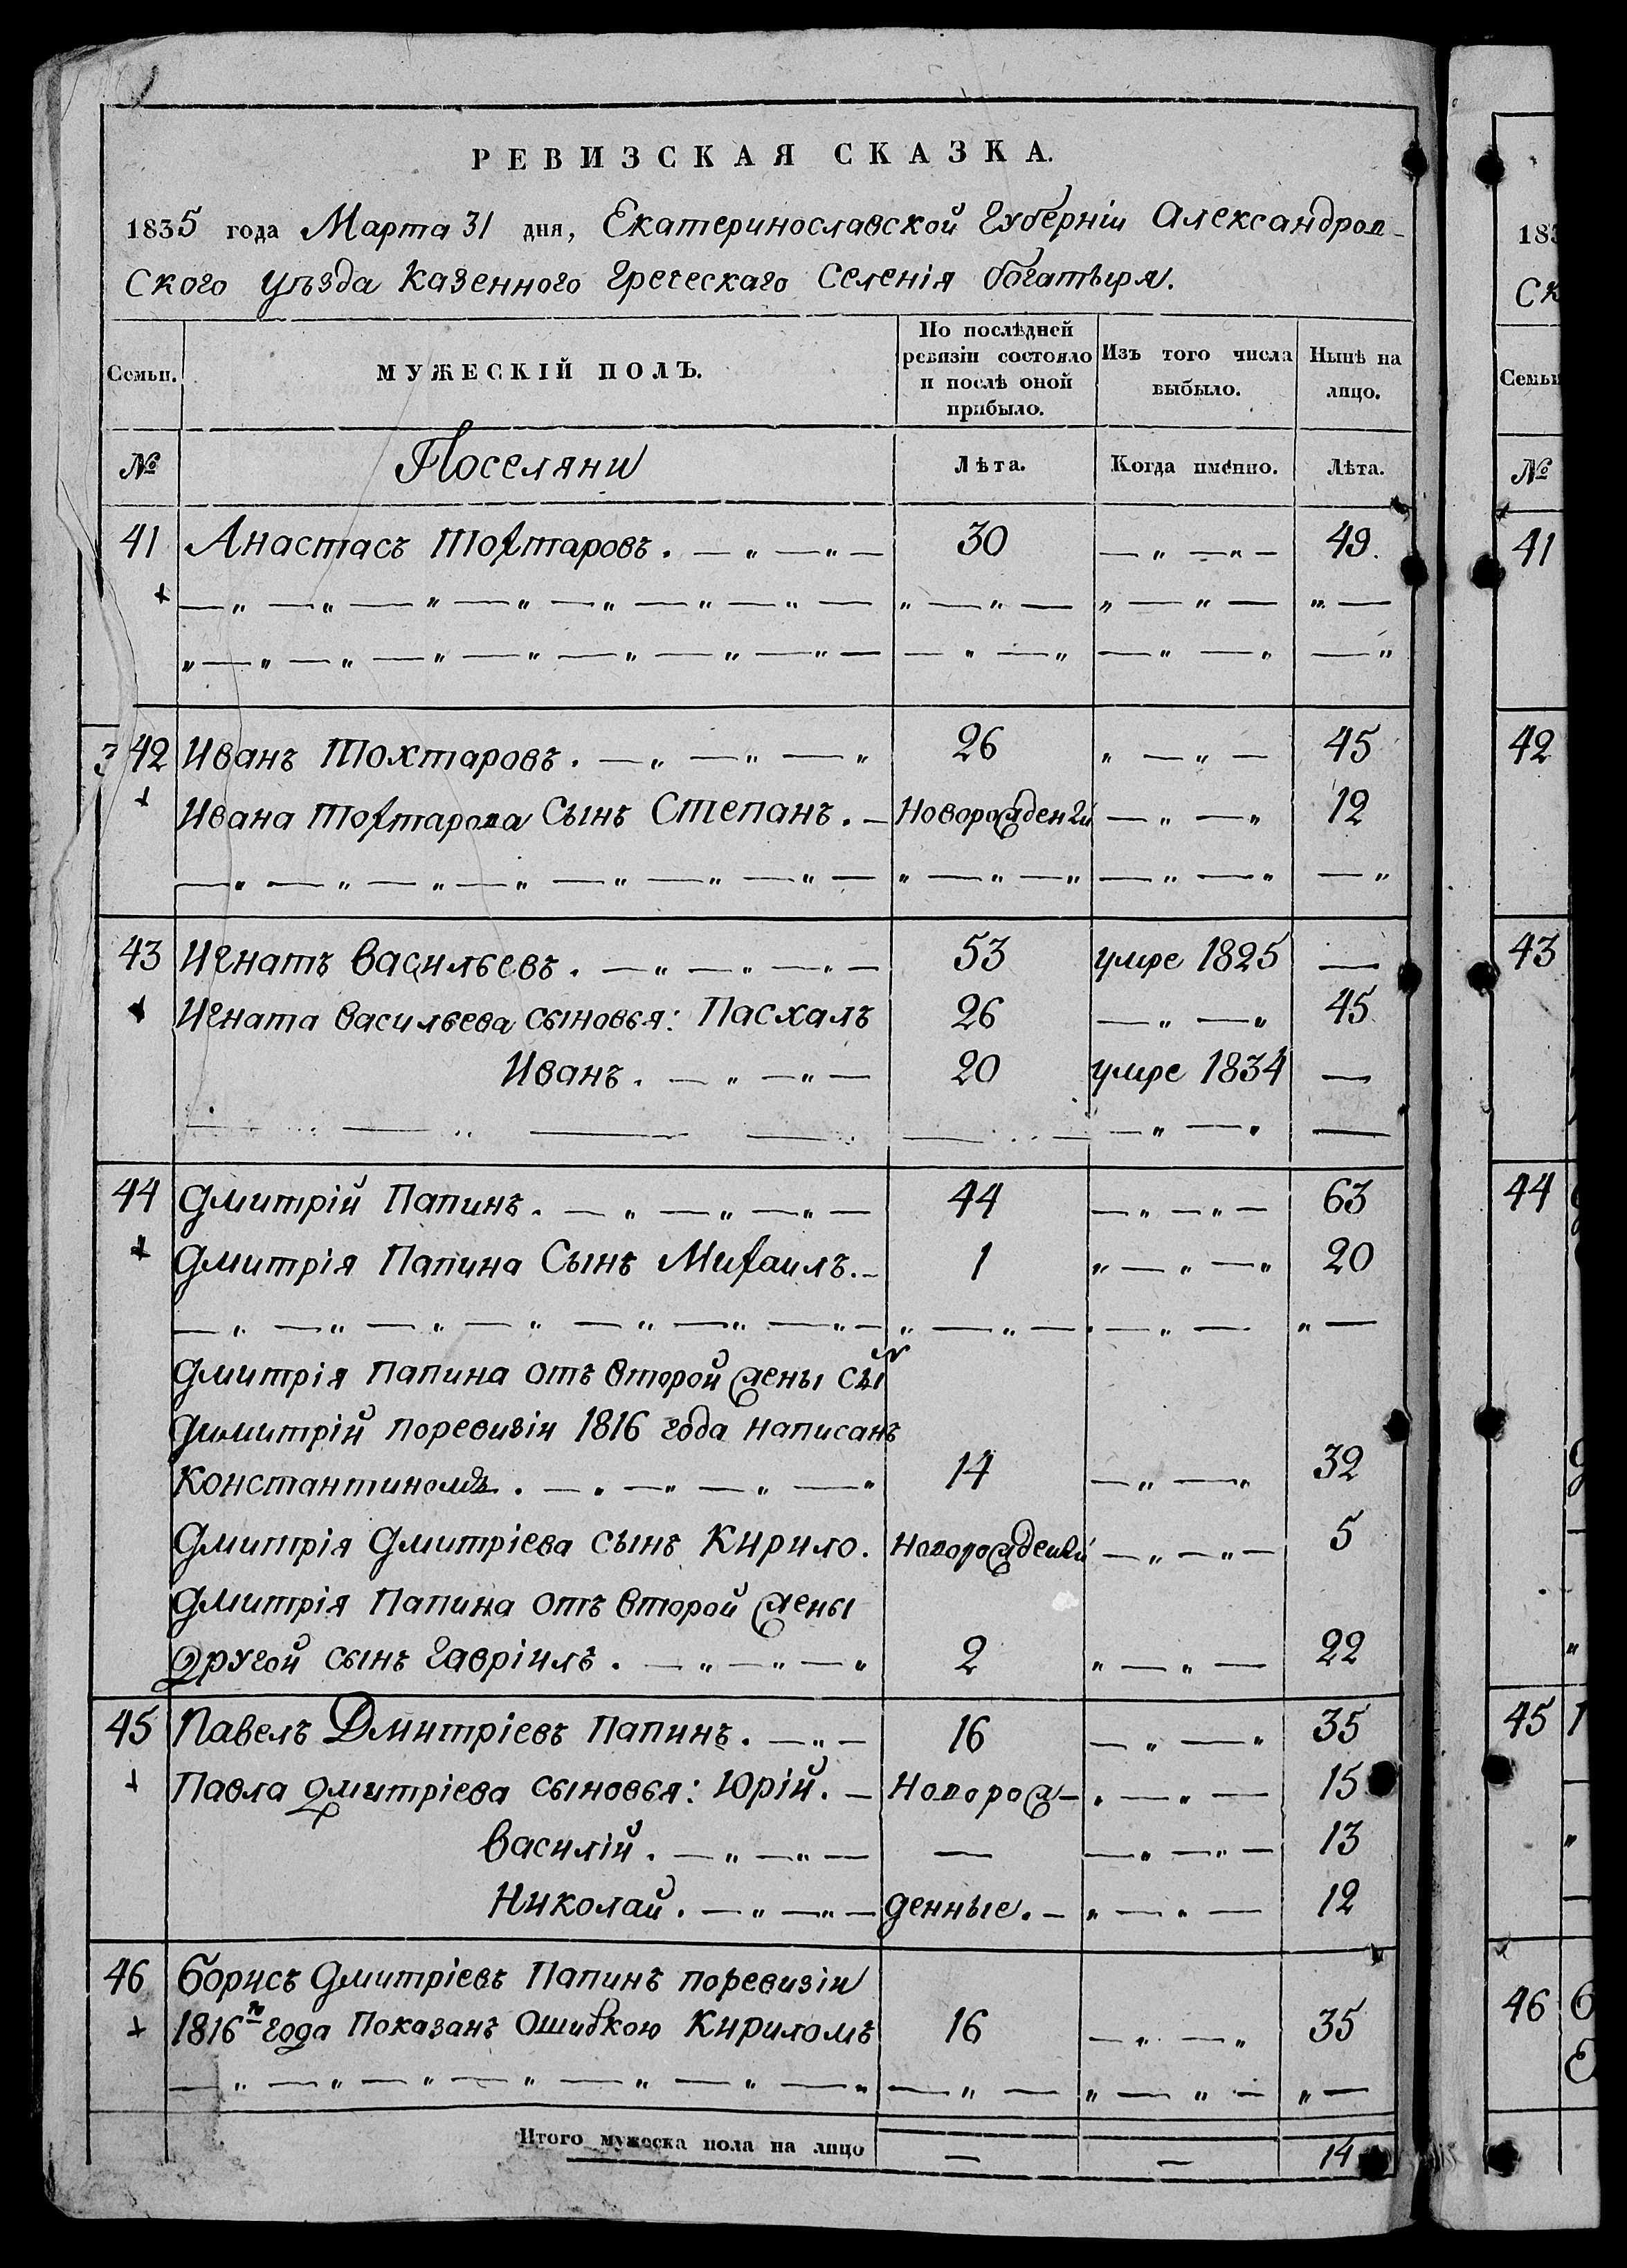 РЕВИЗСКАЯ СКАЗКА.
1835 года Марта 31 дня, Екатеринославской Губерніи Александров-
ского уѣзда казенного греческаго селенія богатыря.
Семьи.
МУЖЕСКІЙ ПОЛЪ.
По послѣдней ревизіи состояло и послѣ оной прибыло.
Изъ того числа выбыло.
Нынѣ на лицо.
№ Поселяни Лѣта. Когда именно. Лѣта.
41 Анастасъ Тохтаровъ. 30 49.
42 Иванъ Тохтаровъ. 26 45
Ивана Тохтарова Сынъ Степанъ. Новорожденый 12
43 Игнатъ Васильевъ. 53 умре 1825 —
Игната Васильева сыновья: Пасхалъ 26 45
Иванъ. 20 умре 1834 —
44 Дмитрій Папинъ. 44 63
Дмитрія Папина Сынъ Михаилъ. 1 20
Дмитрія Папина отъ второй жены сын
Димитрій поревизіи 1816 года написанъ
Константиномъ. 14 32
Дмитрія Дмитріева сынъ Кирило. Новорожденый 5
Дмитрія Папина отъ второй жены
другой сынъ Гавріилъ. 2 22
45 Павелъ Дмитріевъ Папинъ. 16 35
Павла Дмитріева сыновья: Юрій. Новорож- 15
Василій. — 13
Николай. денные. 12
46 Борисъ Дмитріевъ Папинъ поревизіи
1816го года Показанъ Ошибкою Кириломъ 16 35
Итого мужеска пола на лицо — — 14
183
Ск
Семьи
№
41
42
43
44
45
46